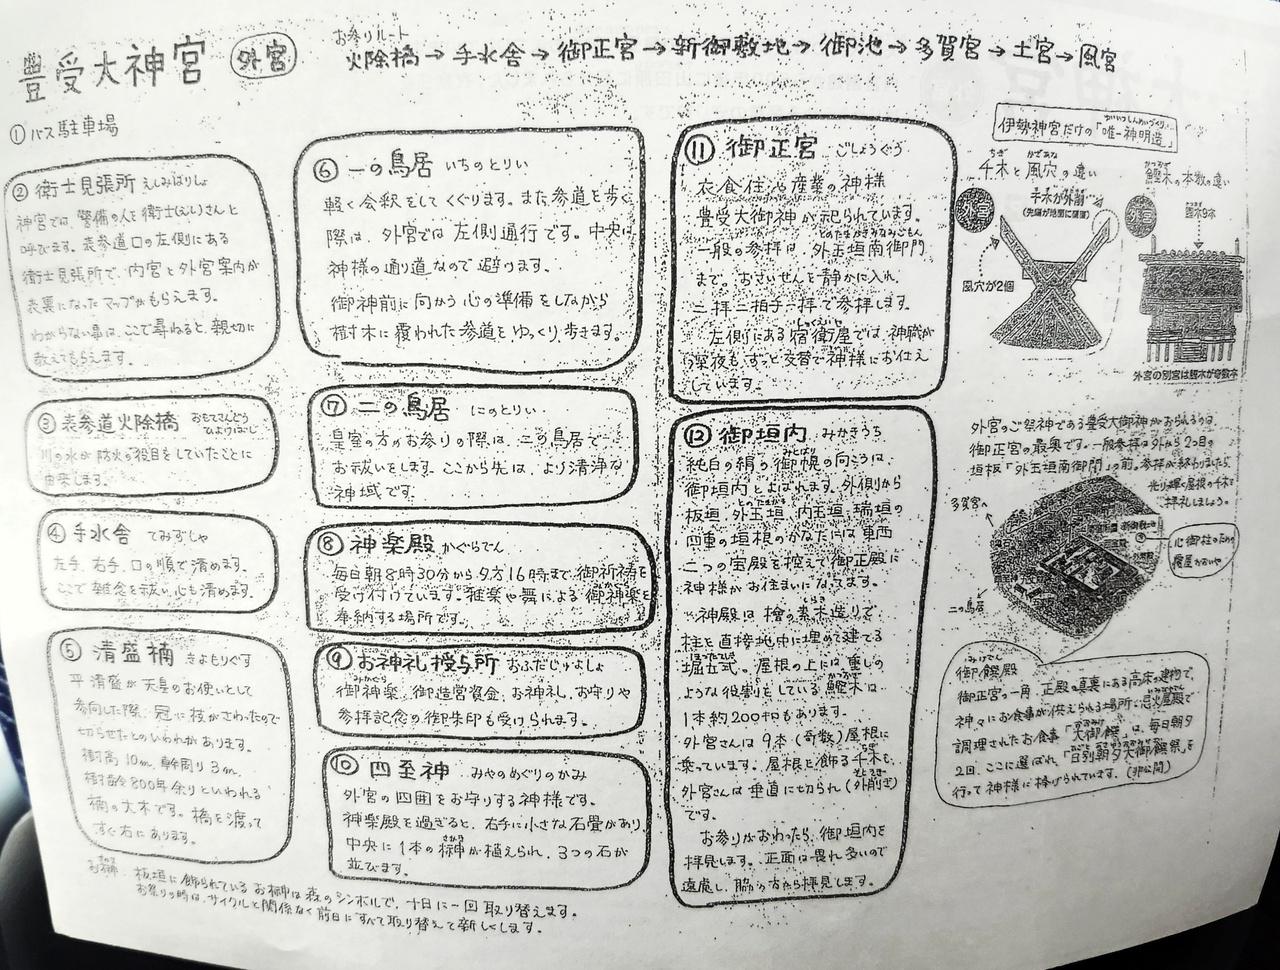 豊受大神宮 外宮
お参りルート
火除橋→手水舎→御正宮→新御敷地→御池→多賀宮→土宮→風宮
①バス駐車場
②衛士見張所 えしみはりしょ
神宮では、警備の人を衛士(えし)さんと
呼びます。表参道口の左側にある
衛士見張所で、内宮と外宮案内が
表裏になったマップがもらえます。
わからない事は、ここで尋ねると、親切に
教えてもらえます。
③表参道火除橋 おもてさんどう
ひよけばし
川の水が防火の役目をしていたことに
由来します。
④手水舎 てみずしゃ
左手、右手、口の順で清めます。
ここで雑念を祓い、心も清めます。
⑤清盛楠 きよもりぐす
平清盛が天皇のお使いとして
参向した際、冠に枝がさわったので
切らせたとのいわれがあります。
樹高10m、幹周り3m、
樹齢800年余りといわれる
楠の大木です。橋を渡って
すぐ右にあります。
⑥一の鳥居 いちのとりい
軽く会釈をしてくぐります。また参道を歩く
際は、外宮では左側通行です。中央は
神様の通り道なので避けます。
御神前に向かう心の準備をしながら
樹木に覆われた参道をゆっくり歩きます。
⑦二の鳥居 にのとりい
皇室の方のお参りの際は、二の鳥居で
お祓いをします。ここから先は、より清浄な
神域です。
⑧神楽殿 かぐらでん
毎日朝8時30分から夕方16時まで、御祈祷を
受け付けています。雅楽や舞による御神楽を
奉納する場所です。
⑨お神札授与所 おふだじゅよしょ
御神楽、御造営資金、お神札、お守りや
参拝記念の御朱印も受けられます。
⑩四至神 みやのめぐりのかみ
外宮の四囲をお守りする神様です。
神楽殿を過ぎると、右手に小さな石畳があり、
中央に1本の榊が植えられ、3つの石が
並びます。
お榊 板垣に飾られているお榊は森のシンボルで、十日に一回取り替えます。
お祭りの時は、サイクルと関係なく前日にすべて取り替えて新しくします。
⑪御正宮 ごしょうぐう
衣食住や産業の神様
豊受大御神が祀られています。
一般の参拝は、外玉垣南御門
まで。おさいせんを静かに入れ、
二拝二拍手一拝で参拝します。
左側にある宿衛屋では、神職が
昼夜も、ずっと交替で神様にお仕え
しています。
⑫御垣内 みかきうち
純白の絹の御幌の向こうは、
御垣内とよばれます。外側から
板垣、外玉垣、内玉垣、瑞垣の
四重の垣根のかなたには、東西
二つの宝殿を控えて御正殿に
神様がお住まいになってます。
神殿は檜の素木造りで
柱を直接地中に埋めて建てる
堀立式。屋根の上には、重しの
ような役割をしている鰹木は
1本約200kgもあります。
外宮さんは9本(奇数)屋根に
乗っています。屋根を飾る千木も、
外宮さんは垂直に切られ(外削ぎ)
です。
お参りがおわったら、御垣内を
拝見します。正面は畏れ多いので
遠慮し、脇の方から拝見します。
伊勢神宮だけの「唯一神明造」
千木と風穴の違い
外宮
千木が外削ぎ
(先端が地面に垂直)
風穴が2個
鰹木の本数の違い
外宮
鰹木9本
外宮の別宮は鰹木が奇数本
外宮のご祭神である豊受大御神がおられるのは、
御正宮の最奥です。一般参拝は外から2つ目の
垣根「外玉垣南御門」の前。参拝が終わりましたら、
光り輝く屋根の千木を
拝礼しましょう。
多賀宮へ
新御敷地
心御柱のための
覆屋 おおいや
二の鳥居
御饌殿 みけでん
御正宮の一角、正殿の真裏にある高床の建物で、
神々にお食事が供えられる場所。忌火屋殿で
調理されたお食事「大御饌」は、毎日朝夕
2回、ここに運ばれ、「日別朝夕大御饌祭」を
行って神様に捧げられています。(非公開)